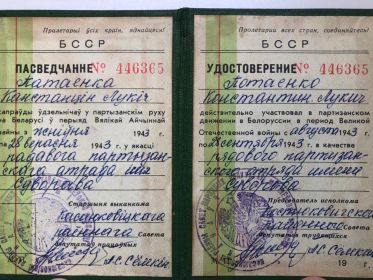 Пралетарыі ўсіх краін, яднайцеся!
БССР
ПАСВЕДЧАННЕ № 446365
Патаенка
Канстанцін Лукіч
сапраўды ўдзельнічаў у партызанскім руху
на Беларусі ў перыяд Вялікай Айчыннай
вайны з жніўня 1943 г. па
28 верасня 1943 г. у якасці
радавога партызан-
скага атрада імя
Суворава
Старшыня выканкома
Касцюковіцкага
раённага Савета
дэпутатаў працоўных
Пролетарии всех стран, соединяйтесь!
БССР
УДОСТОВЕРЕНИЕ № 446365
Потаенко
Константин Лукич
действительно участвовал в партизанском
движении в Белоруссии в период Великой
Отечественной войны с августа 1943 г.
по 28 сентября 1943 г. в качестве
рядового партизан-
ского отряда имени
Суворова
Председатель исполкома
Костюковичского
районного Совета
депутатов трудящихся
19 г.